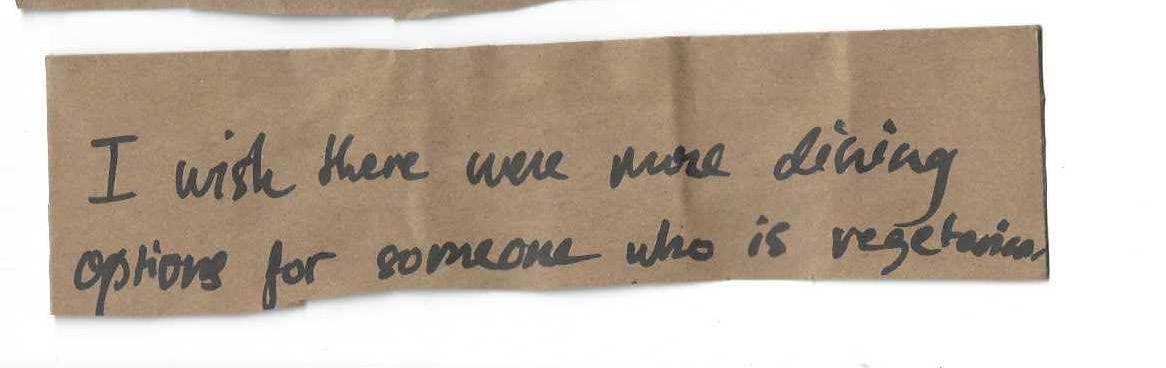 I wish there were more dining
options for someone who is vegetarian